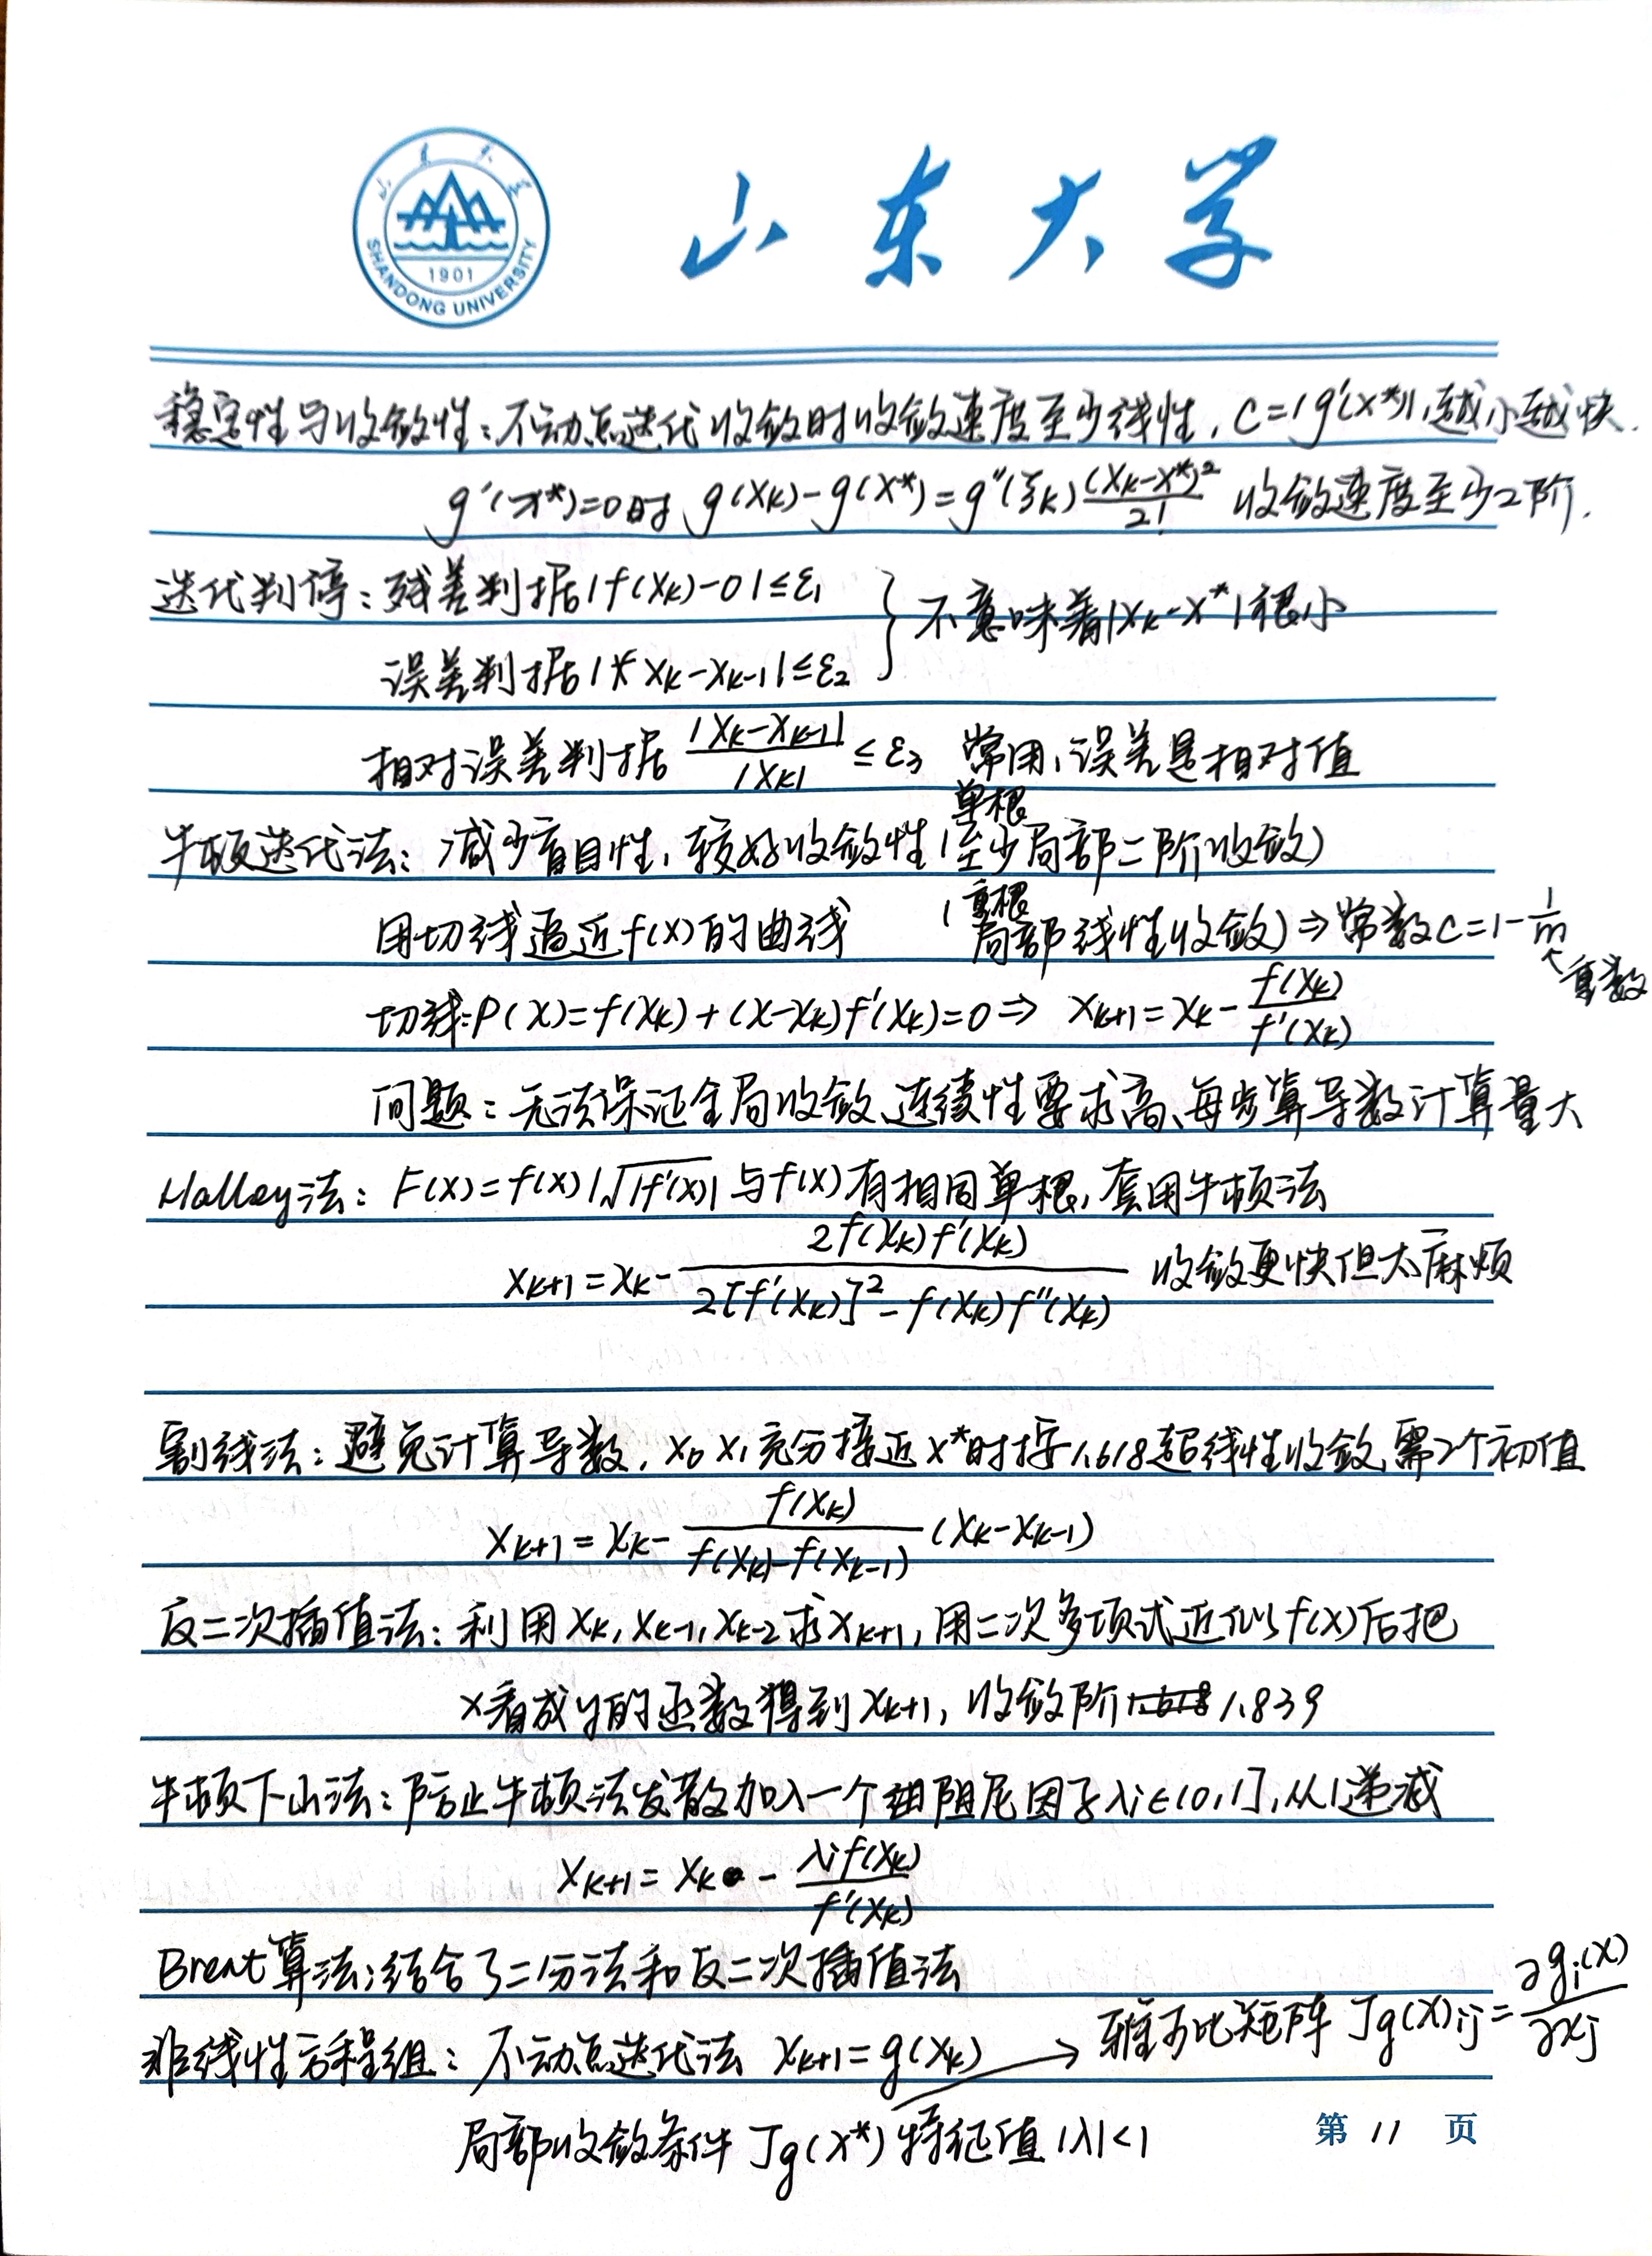 山东大学
SHANDONG UNIVERSITY
1901
稳定性与收敛性：不动点迭代收敛时收敛速度至少线性，C=|g'(x*)|，越小越快.
g'(x*)=0时 g(x_k)-g(x*)=g''(ξ_k)\frac{(x_k-x*)^2}{2!} 收敛速度至少2阶.
迭代判停：残差判据|f(x_k)-0|≤ε_1
误差判据|x_k-x_{k-1}|≤ε_2 } 不意味着|x_k-x*|很小
相对误差判据 \frac{|x_k-x_{k-1}|}{|x_k|}≤ε_3 常用，误差是相对值
单根
牛顿迭代法：减少盲目性，较好收敛性(至少局部二阶收敛)
重根
用切线逼近f(x)的曲线 (局部线性收敛)⇒常数C=1-\frac{1}{m}
重数
切线：P(x)=f(x_k)+(x-x_k)f'(x_k)=0⇒ x_{k+1}=x_k-\frac{f(x_k)}{f'(x_k)}
问题：无法保证全局收敛、连续性要求高、每步算导数计算量大
Halley法：F(x)=f(x)/√|f'(x)| 与f(x)有相同单根，套用牛顿法
x_{k+1}=x_k-\frac{2f(x_k)f'(x_k)}{2[f'(x_k)]^2-f(x_k)f''(x_k)} 收敛更快但太麻烦
割线法：避免计算导数，x_0 x_1充分接近x*时按1.618超线性收敛，需2个初值
x_{k+1}=x_k-\frac{f(x_k)}{f(x_k)-f(x_{k-1})}(x_k-x_{k-1})
反二次插值法：利用x_k,x_{k-1},x_{k-2}求x_{k+1}，用二次多项式近似f(x)后把
x看成y的函数得到x_{k+1}，收敛阶1.839
牛顿下山法：防止牛顿法发散加入一个阻尼因子λi∈(0,1]，从1递减
x_{k+1}=x_k-\frac{λif(x_k)}{f'(x_k)}
Brent算法：结合了二分法和反二次插值法
非线性方程组：不动点迭代法 x_{k+1}=g(x_k) → 雅可比矩阵 Jg(x)ij=\frac{∂g_i(x)}{∂x_j}
局部收敛条件 Jg(x*)特征值|λ|<1
第 11 页